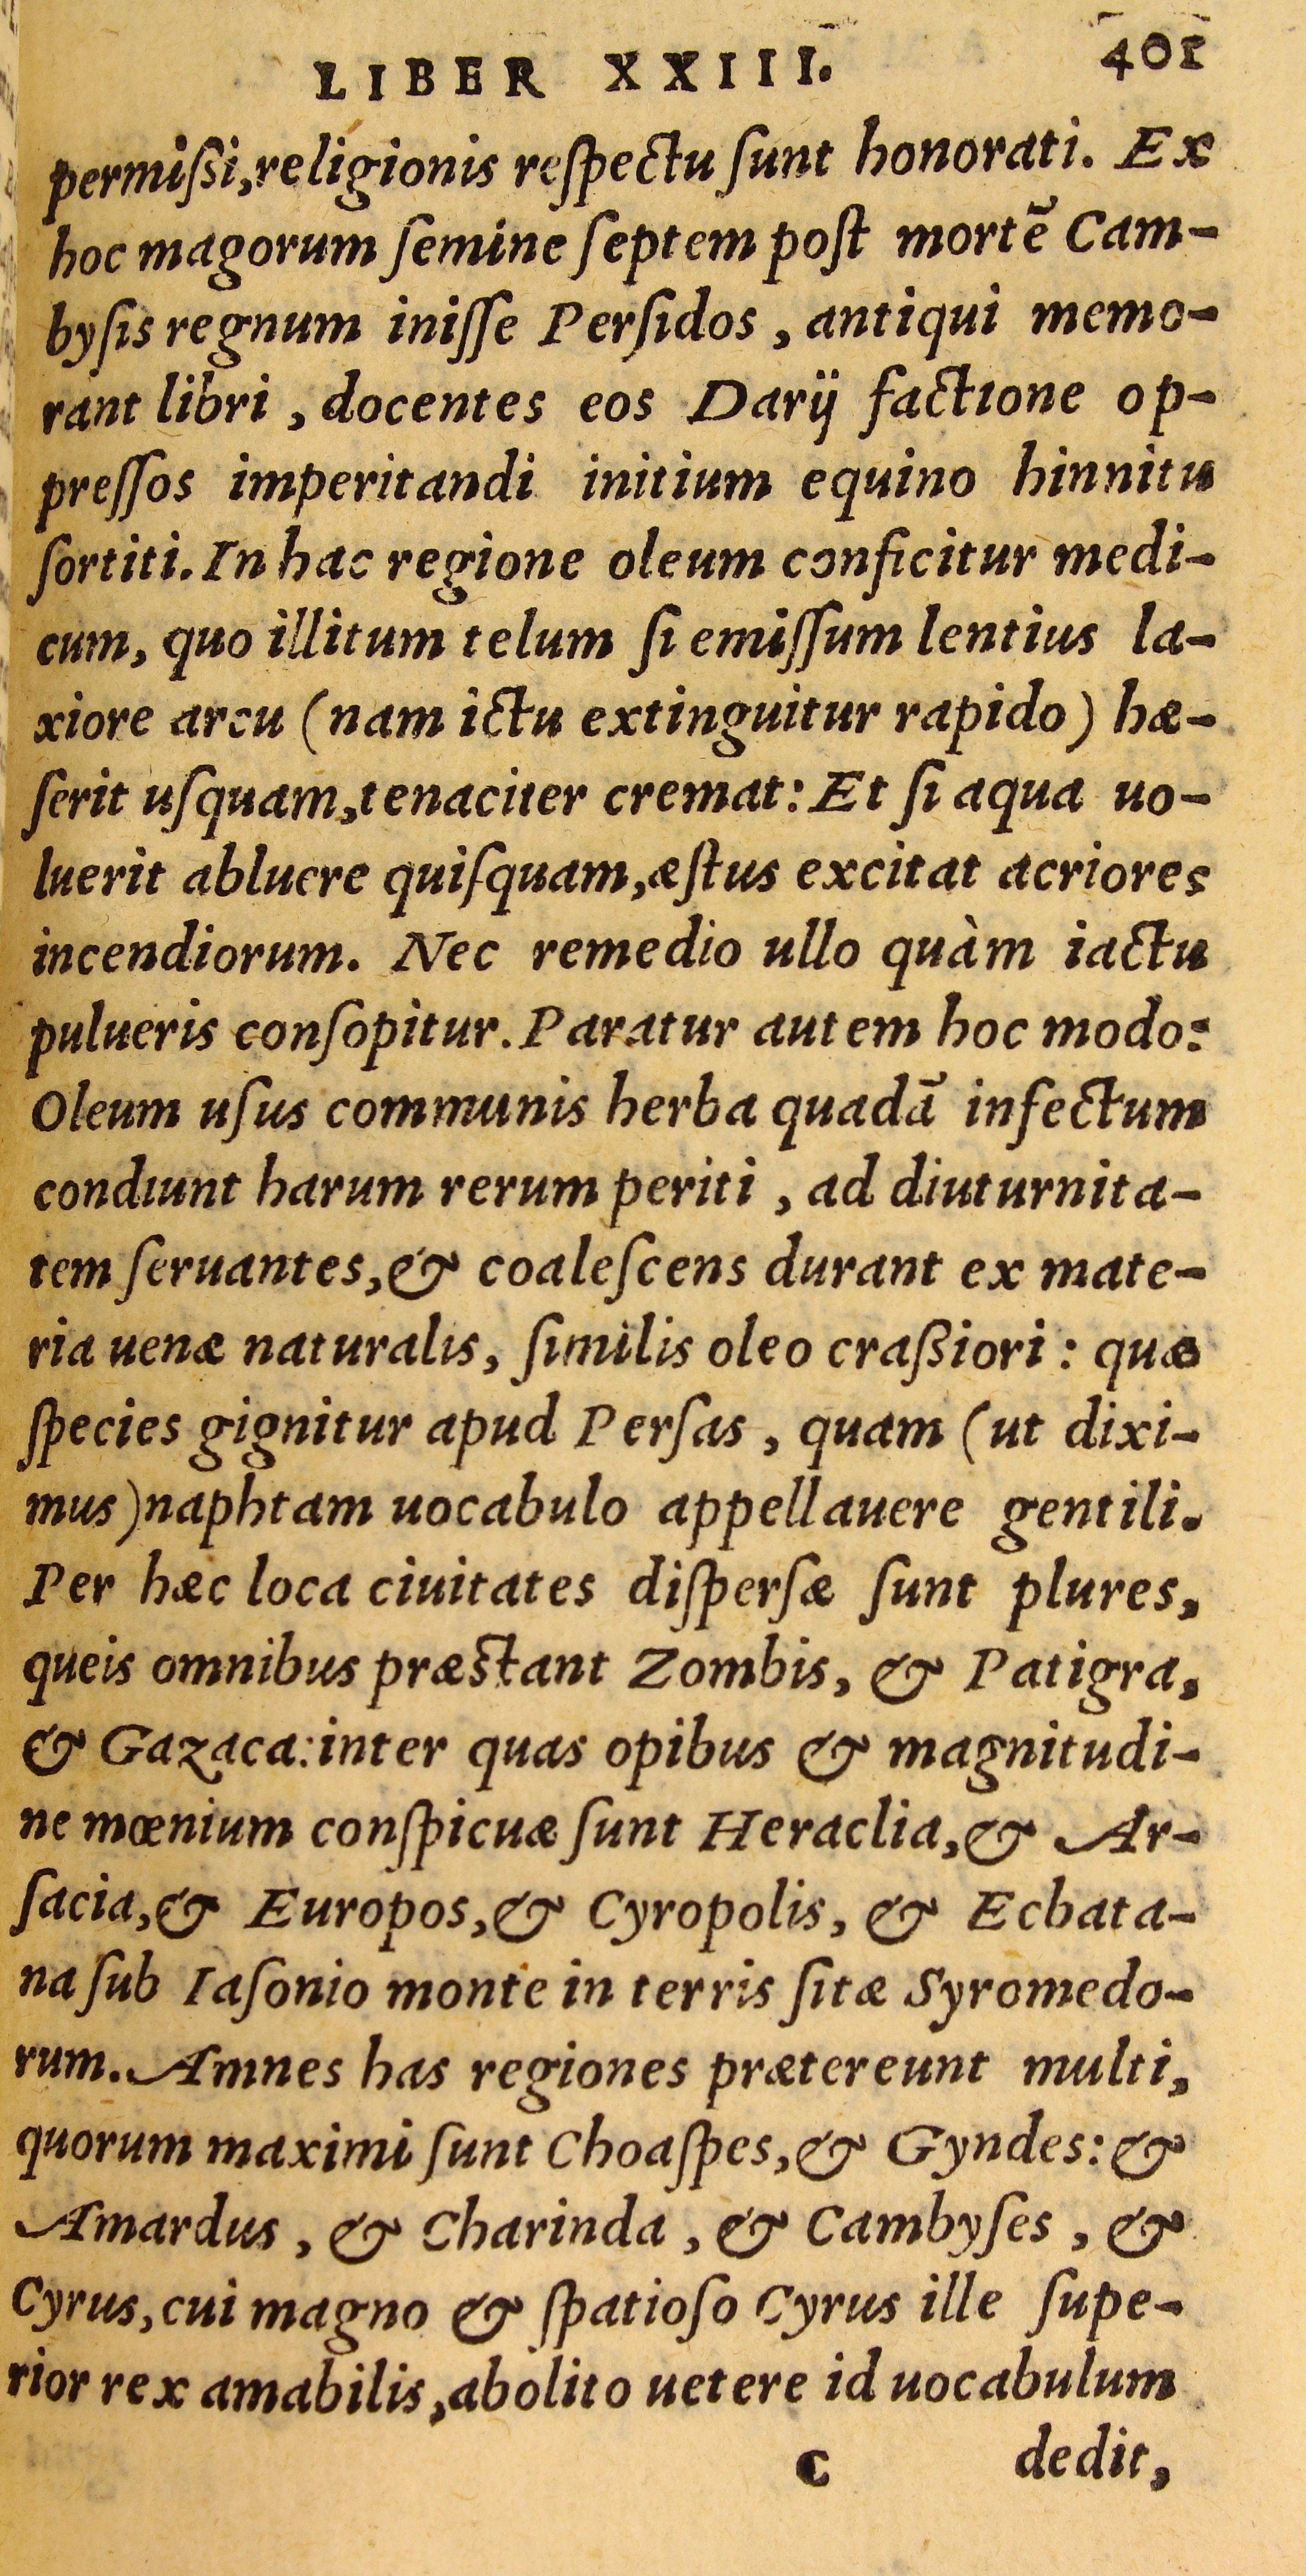 LIBER XXIII. 401
permißi, religionis reſpectu ſunt honorati. Ex
hoc magorum ſemine ſeptem poſt mortē Cam-
byſis regnum iniſſe Perſidos, antiqui memo-
rant libri, docentes eos Darij factione op-
preſſos imperitandi initium equino hinnitu
ſortiti. In hac regione oleum conficitur medi-
cum, quo illitum telum ſi emiſſum lentius la-
xiore arcu (nam ictu extinguitur rapido) hæ-
ſerit uſquam, tenaciter cremat: Et ſi aqua uo-
luerit abluere quiſquam, æſtus excitat acriores
incendiorum. Nec remedio ullo quàm iactu
pulueris conſopitur. Paratur autem hoc modo:
Oleum uſus communis herba quadā infectum
condiunt harum rerum periti, ad diuturnita-
tem ſeruantes, & coaleſcens durant ex mate-
ria uenæ naturalis, ſimilis oleo craßiori: quæ
ſpecies gignitur apud Perſas, quam (ut dixi-
mus) naphtam uocabulo appellauere gentili.
Per hæc loca ciuitates diſperſæ ſunt plures,
queis omnibus præſtant Zombis, & Patigra,
& Gazaca: inter quas opibus & magnitudi-
ne mœnium conſpicuæ ſunt Heraclia, & Ar-
ſacia, & Europos, & Cyropolis, & Ecbata-
na ſub Iaſonio monte in terris ſitæ Syromedo-
rum. Amnes has regiones prætereunt multi,
quorum maximi ſunt Choaſpes, & Gyndes: &
Amardus, & Charinda, & Cambyſes, &
Cyrus, cui magno & ſpatioſo Cyrus ille ſupe-
rior rex amabilis, abolito uetere id uocabulum
C dedit,